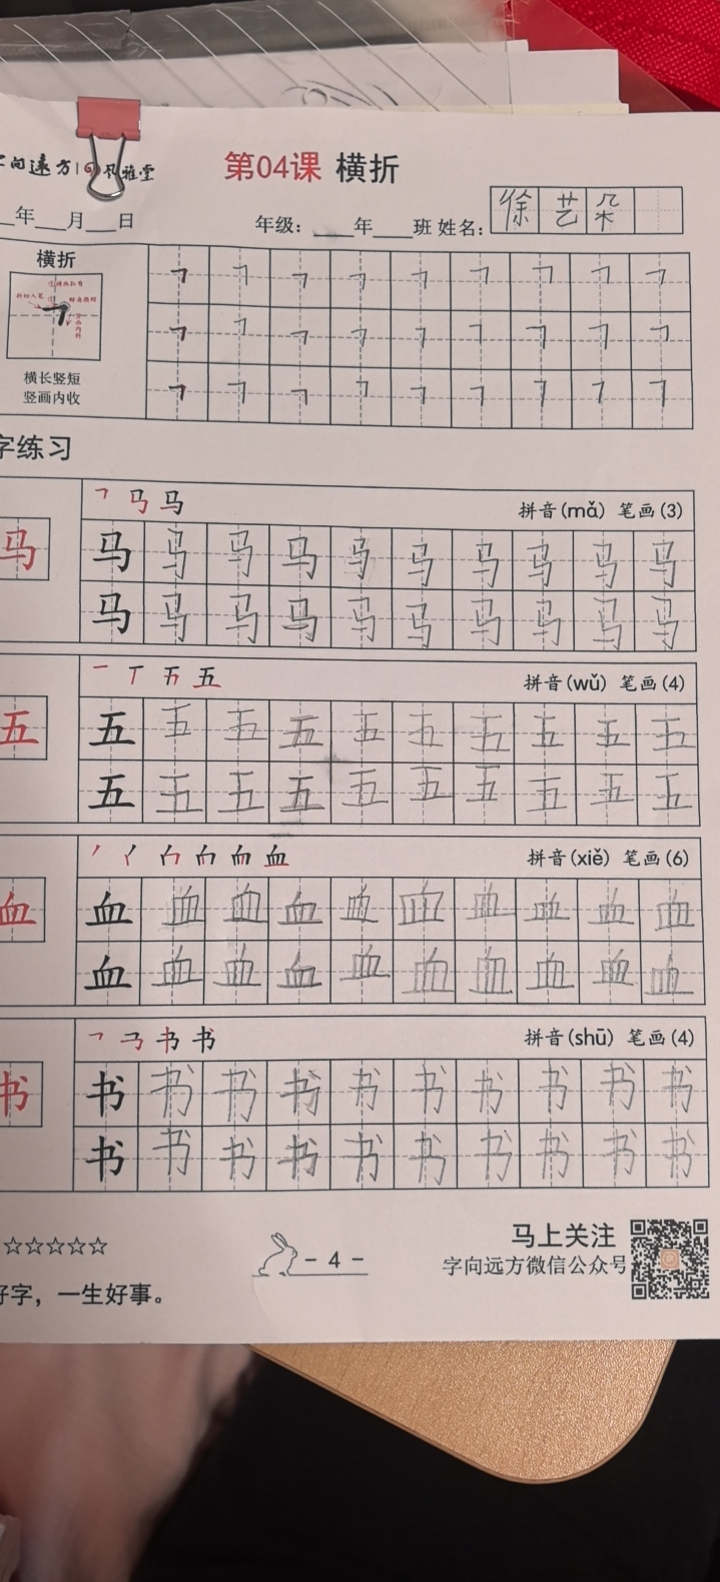 字向远方 风雅堂
第04课 横折
年 月 日 年级: 年 班 姓名: 徐艺朵
横折
横长竖短
竖画内收
字练习
马 拼音(mǎ) 笔画(3)
马 马 马 马 马 马 马 马 马 马 马
马 马 马 马 马 马 马 马 马 马
五 拼音(wǔ) 笔画(4)
五 五 五 五 五 五 五 五 五 五 五
五 五 五 五 五 五 五 五 五 五
血 拼音(xiě) 笔画(6)
血 血 血 血 血 血 血 血 血 血 血
血 血 血 血 血 血 血 血 血 血
书 拼音(shū) 笔画(4)
书 书 书 书 书 书 书 书 书 书 书
书 书 书 书 书 书 书 书 书 书
☆☆☆☆☆
- 4 -
马上关注
字向远方微信公众号
好字，一生好事。